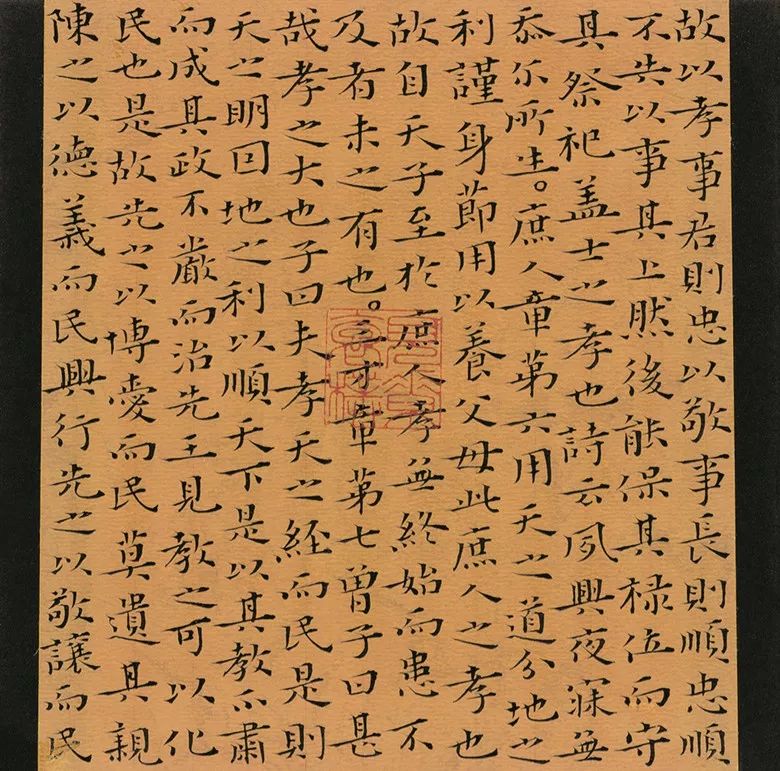 故以孝事君則忠以敬事長則順忠順
不失以事其上然後能保其禄位而守
其祭祀盖士之孝也詩云夙興夜寐無
忝尓所生。庶人章第六用天之道分地之
利謹身節用以養父母此庶人之孝也
故自天子至於庶人孝無終始而患不
及者未之有也。三才章第七曾子曰甚
哉孝之大也子曰夫孝天之経而民是則
天之明因地之利以順天下是以其教不肅
而成其政不嚴而治先王見教之可以化
民也是故先之以博愛而民莫遺其親
陳之以德義而民興行先之以敬讓而民